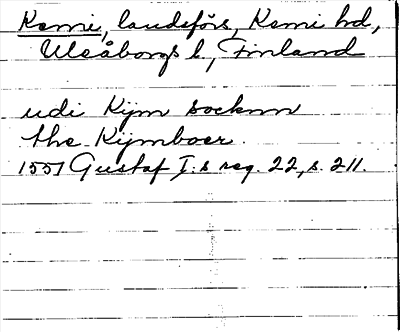 Kemi, landsförs, Kemi hd,
Uleåborgs l., Finland
udi Kijm socknn
the Kijmboer.
1551 Gustaf I:s reg. 22, s. 211.